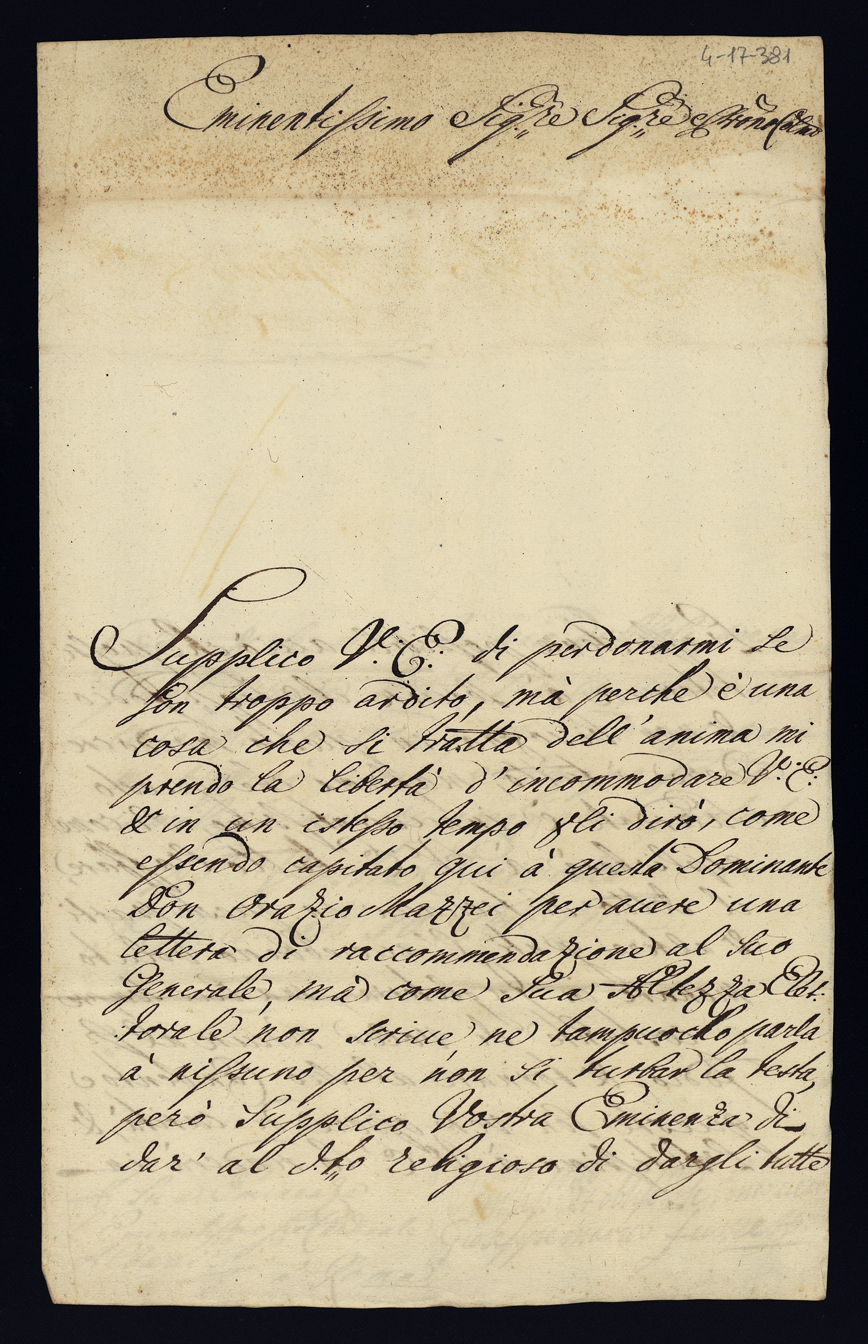 4-17-381
Eminentissimo Sig.re Sig.re
Supplico V: E: di perdonarmi se
son troppo ardito, mà perche è una
cosa che si tratta dell'anima mi
prendo la libertà d'incommodare V: E:
& in un istesso tempo gli dirò, come
essendo capitato qui à questa Dominante
Don Orazio Mazzei per auere una
lettera di raccommendazione al suo
Generale, mà come Sua Altezza Elet:
torale non scriue ne tampuocho parla
à nissuno per non si turbar la testa,
però Supplico Vostra Eminenza di
dar' al d.to religioso di dargli tutte